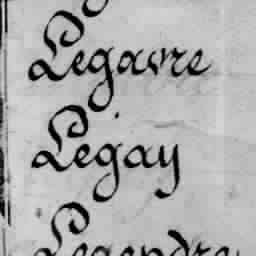 Legavre
Legay
Legendre